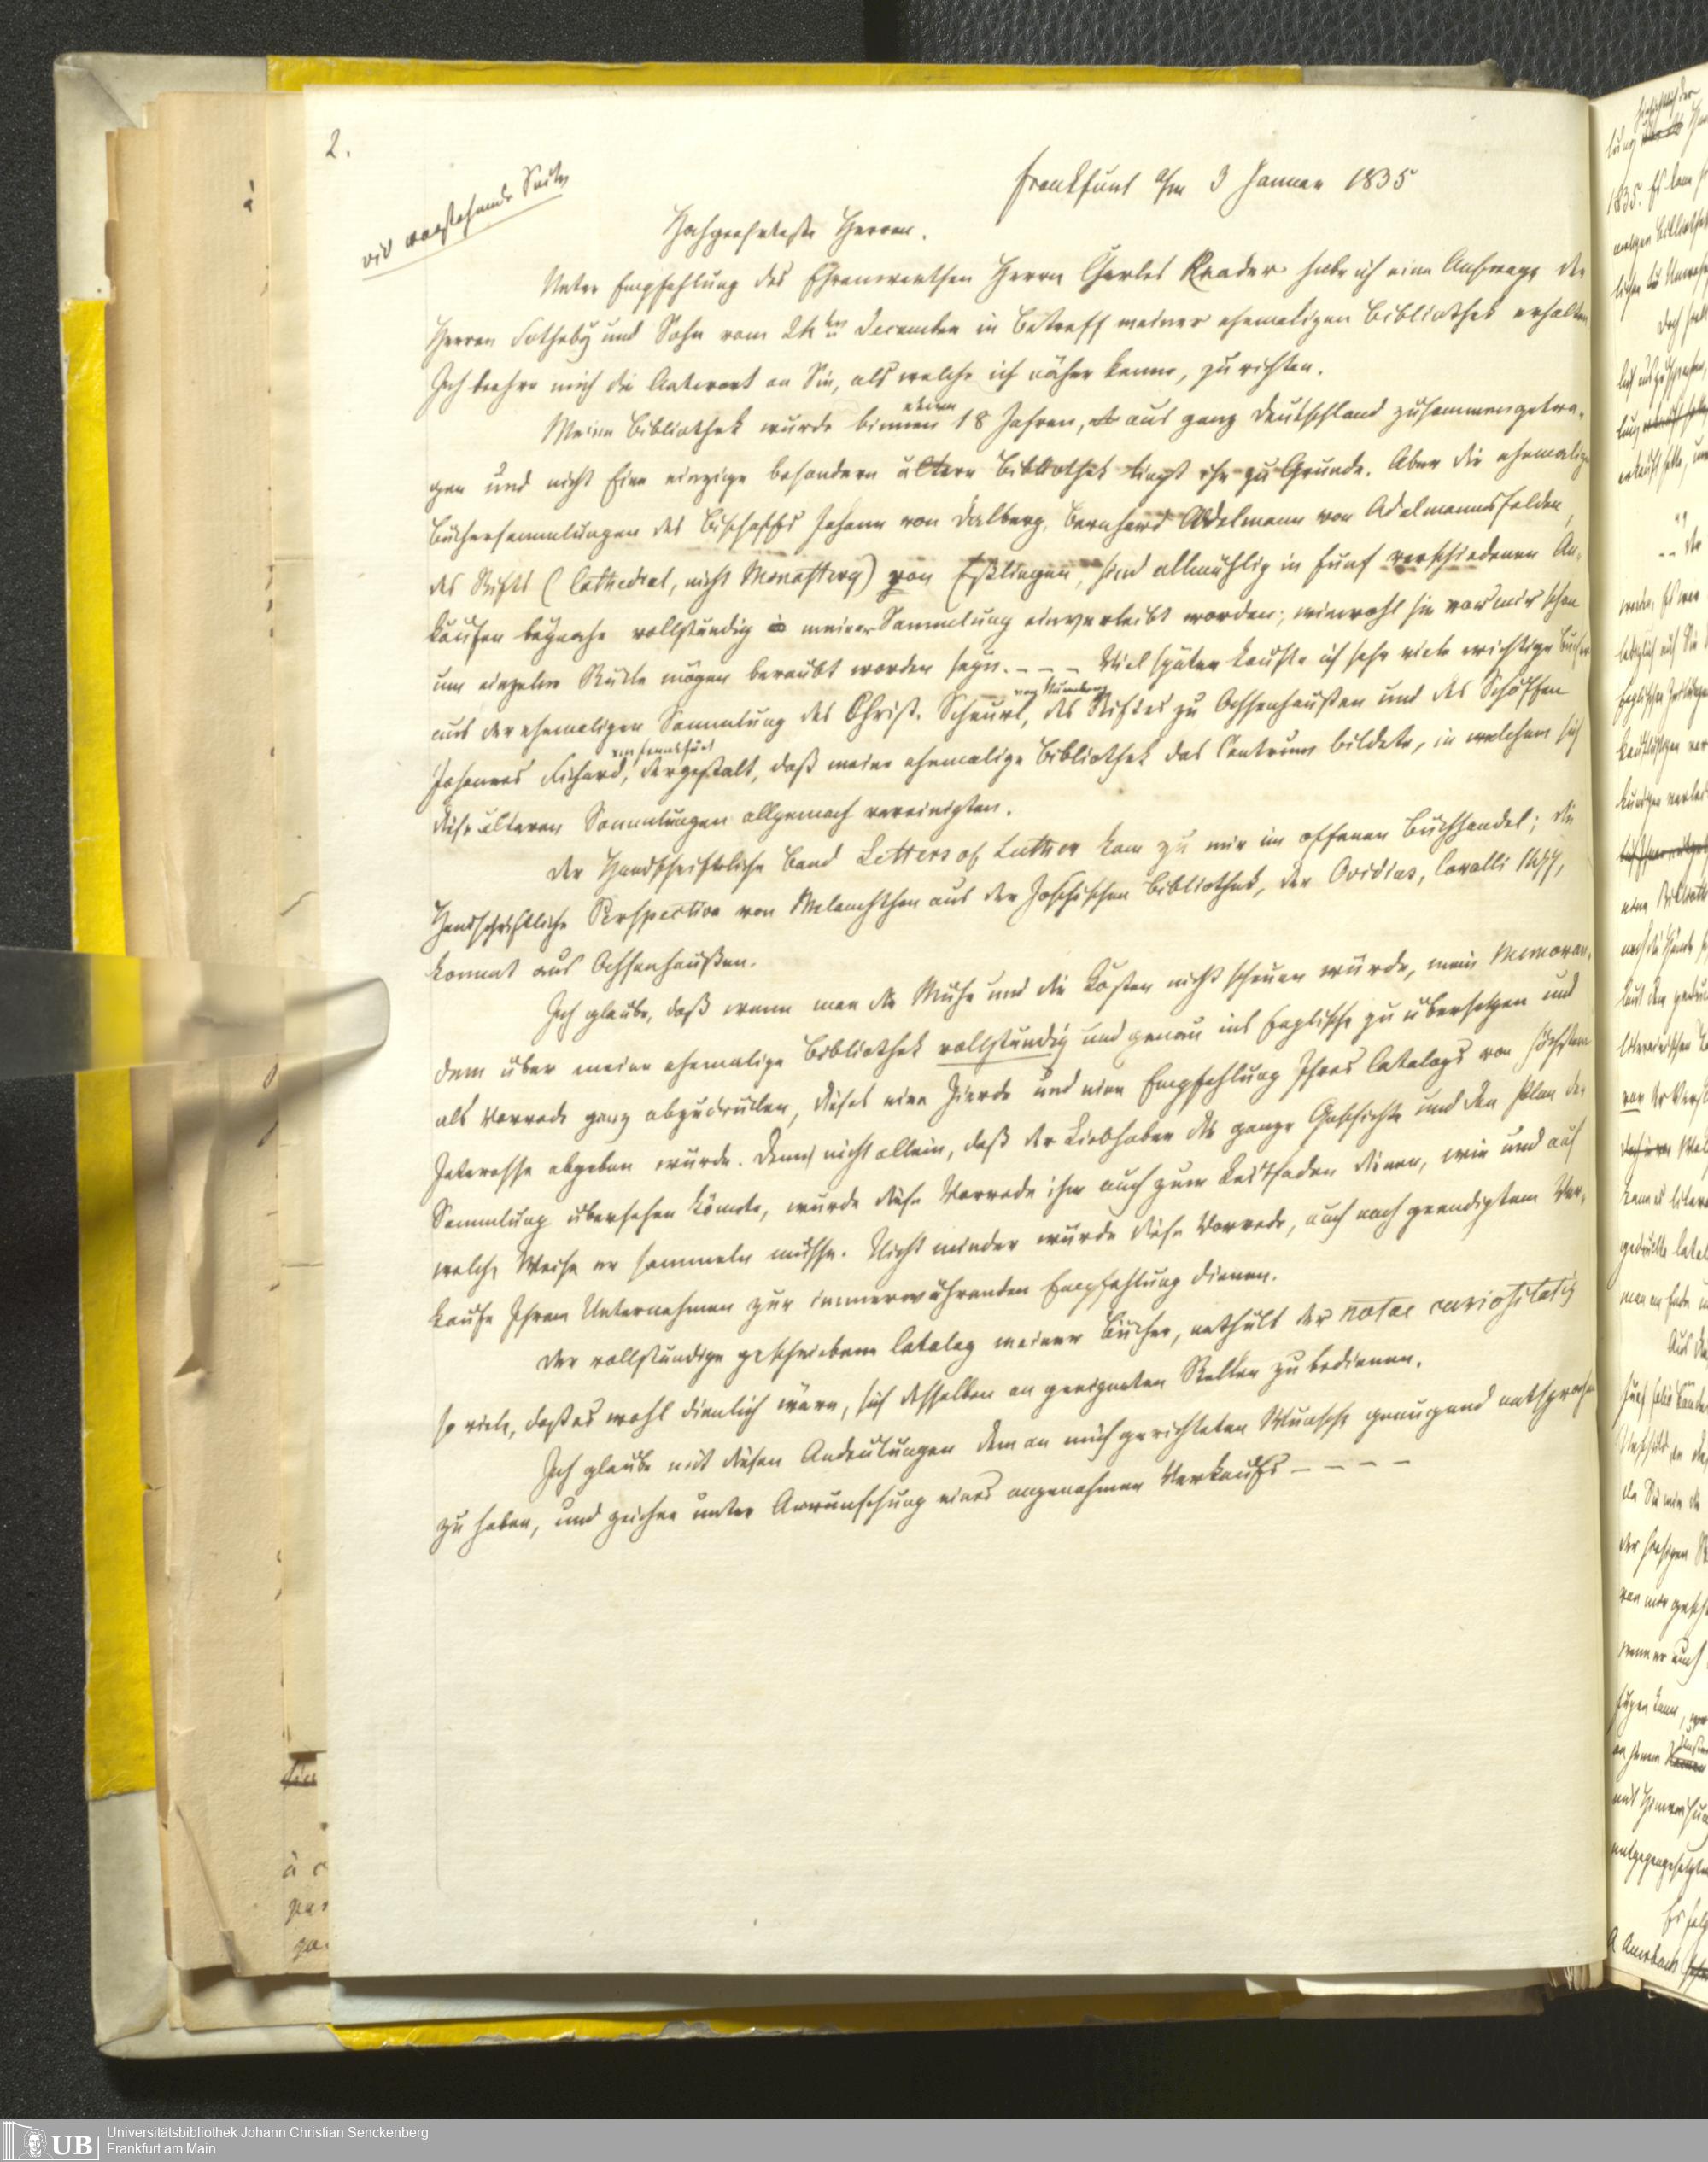 2.
vid vorstehende Seite
Frankfurt a/m 3 Januar 1835
Hochgeehrteste Herren.
Unter Empfehlung des Ehrenwerthen Herrn Charles Reader habe ich eine Anfrage der
Herren Sotheby und Sohn vom 24ten December in Betreff meiner ehemaligen Bibliothek erhalten
Ich beehre mich die Antwort an Sie, als welche ich näher kenne, zu richten.
Meine Bibliothek wurde binnen etwa 18 Jahren, aus ganz Deutschland zusammengetra-
gen und nicht Eine einzige besondere ältere Bibliothek liegt ihr zu Grunde. Aber die ehemalige
Büchersammlungen des Bischoffs Johann von Dalberg, Bernhard Adelmann von Adelmannsfelden,
des Stifts (Cathedral, nicht Monastery) von Eßlingen, sind allmählig in fünf verschiedenen An-
käufen beynahe vollständig meiner Sammlung einverleibt worden; wiewohl sie vor mir schon
um einzelne Stücke mögen beraubt worden seyn. - - - Viel später kaufte ich sehr viele wichtige Bücher
aus der ehemaligen Sammlung des Christ. Scheurl, von Nürnberg des Stiftes zu Ochsenhaußen und des Schöffen
Johannes Fichard, von Frankfurt dergestalt, daß meine ehemalige Bibliothek das Centrum bildete, in welchem sich
diese älteren Sammlungen allgemach vereinigten.
Der Handschriftliche Band Letters of Luther kam zu mir im offenen Buchhandel; die
Handschriftliche Perspectiva von Melanchthon aus der Bibliothek, der Ovidius,
kommt aus Ochsenhaußen.
Ich glaube, daß wenn man die Mühe und die Kosten nicht scheuen würde, mein Memoran-
dum über meine ehemalige Bibliothek vollständig und genau ins Englische zu übersetzen und
als Vorrede ganz abzudrucken, dieses eine Zierde und eine Empfehlung Ihres Catalogs von höchstem
Interesse abgeben würde. Denn nicht allein, daß der Liebhaber die ganze Geschichte und den Plan der
Sammlung übersehen könnte, würde diese Vorrede ihm auch zum Leitfaden dienen, wie und auf
welche Weise er sammeln müsse. Nicht minder würde diese Vorrede, auch nach geendigtem Ver-
kaufe Ihrem Unternehmen zur immerwährenden Empfehlung dienen.
Der vollständige geschriebene Catalog meiner Bücher, enthält der notae curiositatis
so viele, daß es wohl dienlich wäre, sich desselben an geeigneten Stellen zu bedienen.
Ich glaube mit diesen Andeutungen dem an mich gerichteten Wunsche genugend entsprochen
zu haben, und zeichne unter Anwünschung eines angenehmen Verkaufs - - - -
UB
Universitätsbibliothek Johann Christian Senckenberg
Frankfurt am Main